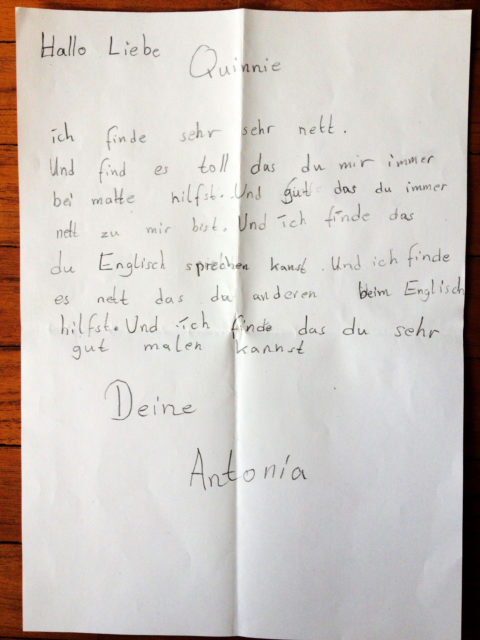 Hallo Liebe
Quinnie
ich finde sehr sehr nett.
Und find es toll das du mir immer
bei matte hilfst. Und gut das du immer
nett zu mir bist. Und ich finde das
du Englisch sprechen kanst. Und ich finde
es nett das du anderen beim Englisch
hilfst. Und ich finde das du sehr
gut malen kannst
Deine
Antonia